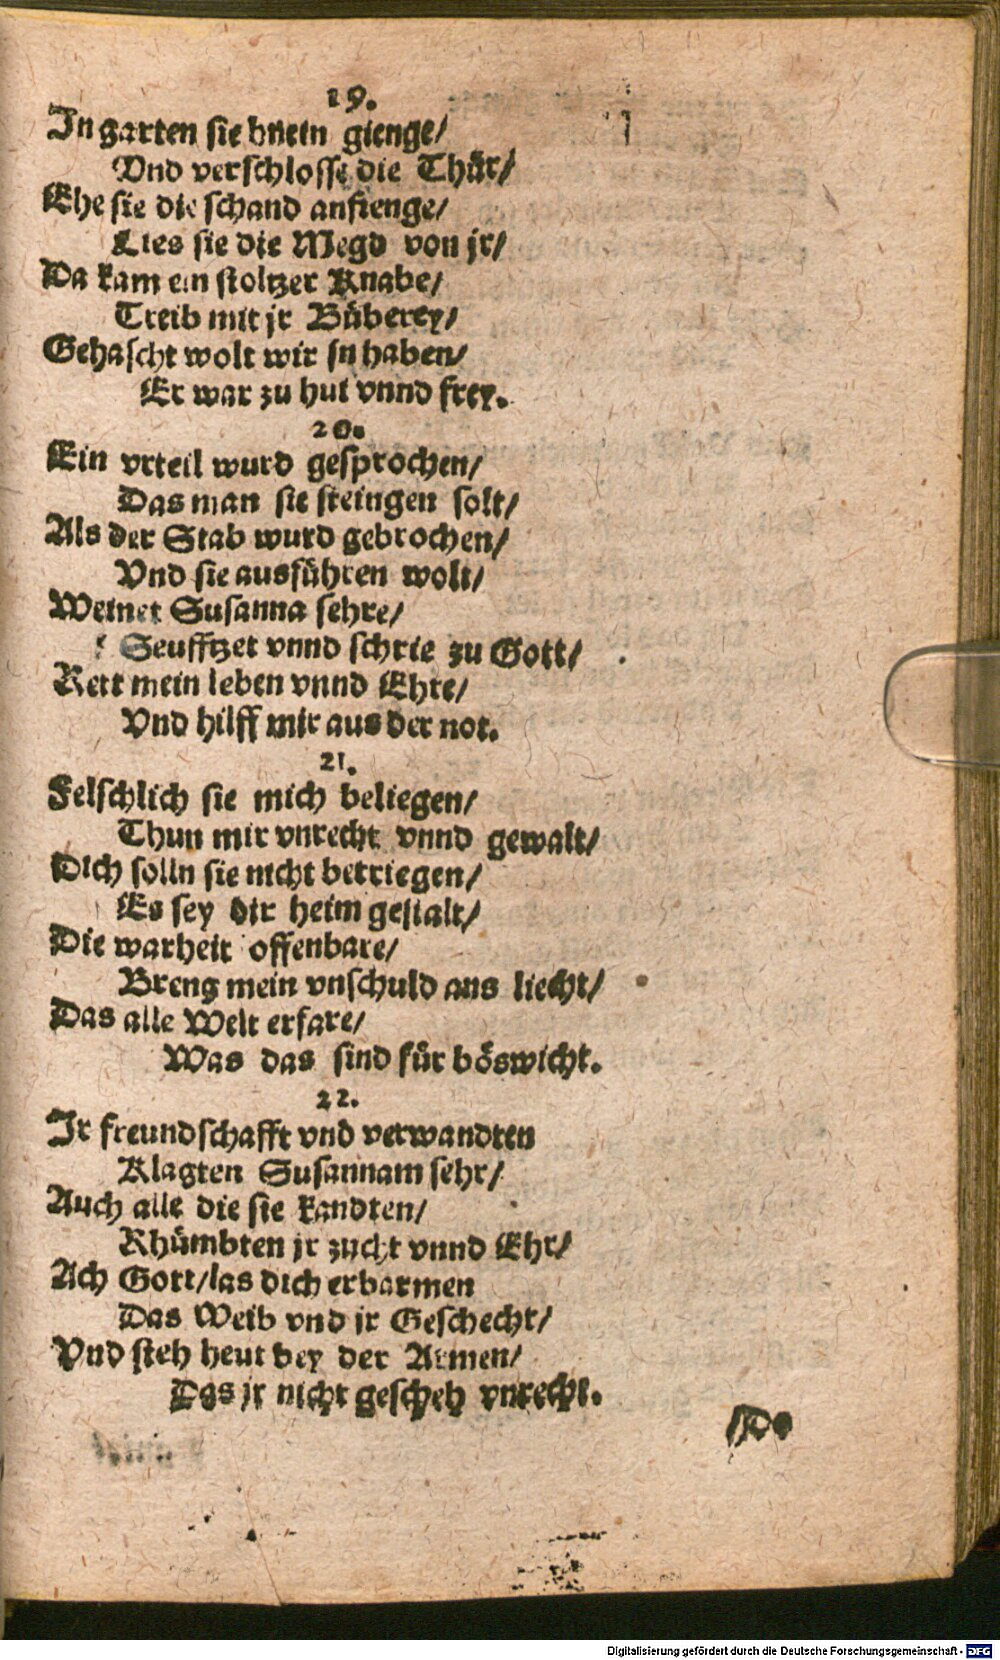 19.
In garten sie hnein gienge/
Vnd verschlosse die Thür/
Ehe sie die schand anfienge/
Lies sie die Megd von jr/
Da kam ein stoltzer Knabe/
Treib mit jr Büberey/
Gehascht wolt wir jn haben/
Er war zu hut vnnd frey.
20.
Ein vrteil wurd gesprochen/
Das man sie steingen solt/
Als der Stab wurd gebrochen/
Vnd sie ausführen wolt/
Weinet Susanna sehre/
Seufftzet vnnd schrie zu Gott/
Rett mein leben vnnd Ehre/
Vnd hilff mir aus der not.
21.
Felschlich sie mich beliegen/
Thun mir vnrecht vnnd gewalt/
Dich solln sie nicht betriegen/
Es sey dir heim gestalt/
Die warheit offenbare/
Breng mein vnschuld ans liecht/
Das alle Welt erfare/
Was das sind für böswicht.
22.
Ir freundschafft vnd verwandten
Klagten Susannam sehr/
Auch alle die sie kandten/
Rhümbten jr zucht vnnd Ehr/
Ach Gott/las dich erbarmen
Das Weib vnd jr Geschecht/
Vnd steh heut bey der Armen/
Das jr nicht gescheh vnrecht.
Digitalisierung gefördert durch die Deutsche Forschungsgemeinschaft - DFG